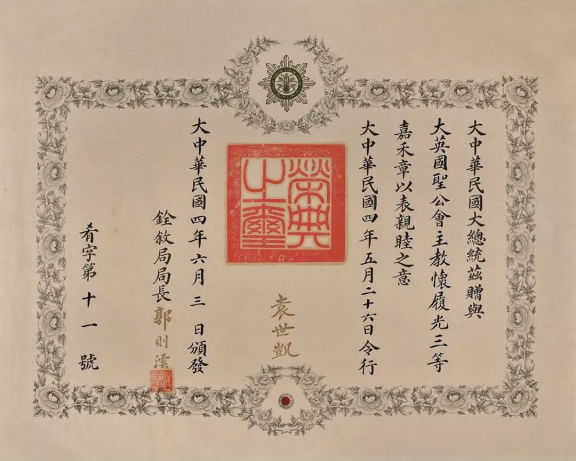 大中華民國大總統茲贈與
大英國聖公會主教懷履光三等
嘉禾章以表親睦之意
大中華民國四年五月二十六日令行
榮典之璽
袁世凱
大中華民國四年六月三日頒發
銓敘局局長郭則澐
肴字第十一號